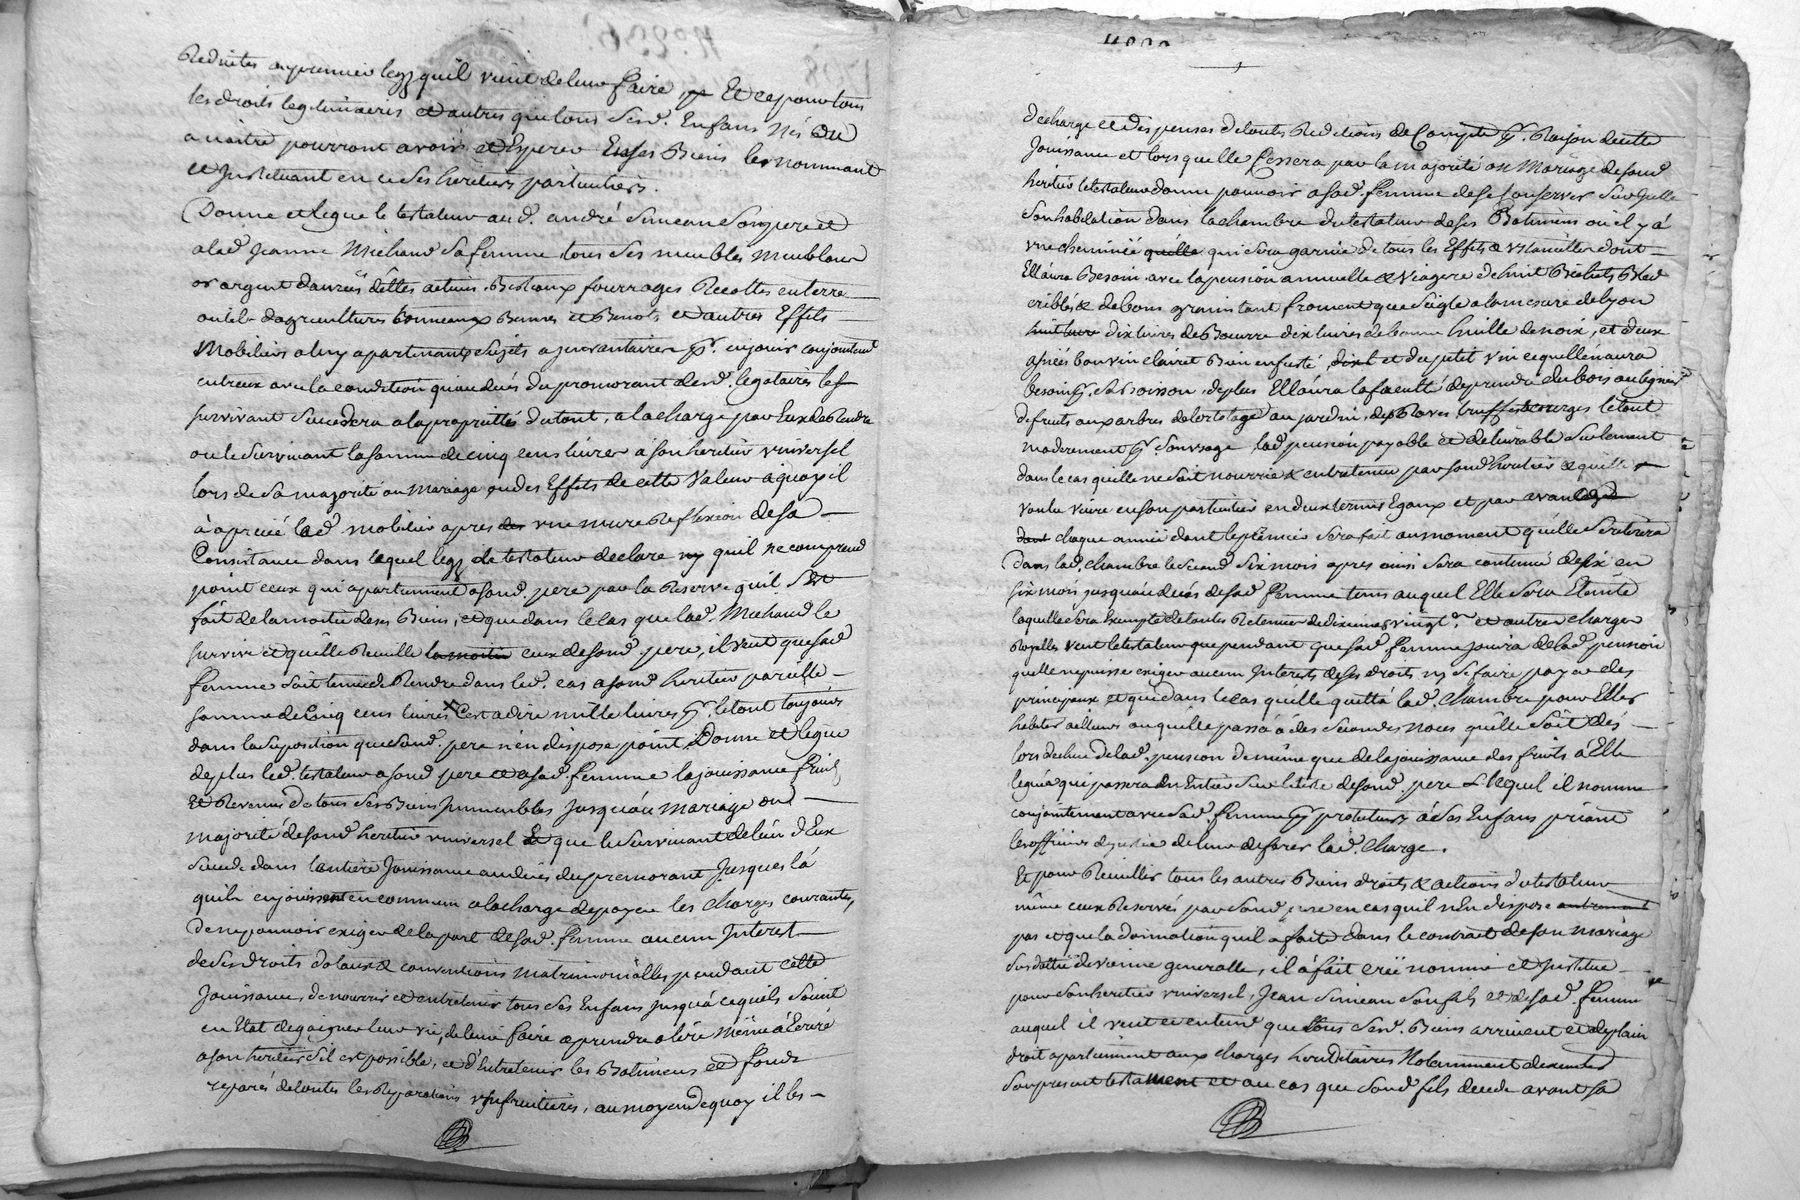 Reduites au premier legz quil vient de leur faire, et ce pour tous
les droits legitimaires et autres que tous sesd. Enfans Nés ou
a naitre pourront avoir et Esperer sur ses Biens les nommant
et Jnstituant en ce ses heritiers particuliers.
Donne et legue le testateur aud. andré Simean son pere et
a lad. Jeanne Michaud sa femme tous ses meubles Meublans
or argent danrées dêttes actives Bestiaux fourrages Recoltes en terre
outils dagriculture tonneaux Bennes et Benots et autres Effets
Mobiliers a luy apartenants sujets a jnventaire pr. en jouir conjointemt.
entreux avec la condition quau decés du premorant desd. legataires le
survivant succedera a la propriettés du tout, a la charge par Eux de Rendre
ou le survivant la somme de cinq cens livres a son heritier universel
lors de sa majorité ou Mariage ou des Effets de cette Valeur a quoy il
à aprecié lad. mobilier apres une mure Reflexion de sa
Consistance dans lequel legz le testateur declare quil ne comprend
point ceux qui apartiennent a sond. pere par la Reserve quil s'est
fait de la moitié de ses Biens, et que dans le cas que lad. Michaud le
survive et qu'elle Recuille la moitié ceux de sond. pere, il veut que sad.
femme soit tenue de Rendre dans led. cas a sond. heritier pareille
somme de Cinq cens livres C'est a dire mille livres pr. le tout toujours
dans la suposition que sond. pere n'en dispose point. Donne et legue
de plus led. testateur a sond. pere et a sad. femme la jouissance fruits
Et Revenus de tous ses Biens Jmmeubles jusqu'au Mariage ou
majorité de sond. heritier universel et que le survivant de l'un d'Eux
succede dans l'entiere Jouissance au decés du premorant Jusques là
quils en jouissent en commun a la charge de payer les charges courantes,
De ne pouvoir exiger de la part de sad. femme aucun Interest
de ses droits dotaux & conventions matrimonialles pendant cette
Jouissance, de nourrir et entretenir tous ses Enfans jusqu'a ce quils soint
en Etat de gaigner leur vie, de leur faire aprendre a lire Même à Ecrire
a son heritier s'il est possible, et d'Entretenir les Batimens et fonds
reparés de toutes les Reparations usufruitieres, au moyen de quoy il les
decharge et dispense de toutes Redditions de Compte pr. Raison de cette
Jouissance et lors quelle Cessera par la majorité ou Mariage de sond.
heritier le testateur donne pouvoir a sad. femme de se Conserver
son habitation dans la chambre du testateur de ses Batimens où il y à
une cheminée quelle qui sera garnie de tous les Effets & Ustancilles dont
Ell'aura Besoin avec la pension annuelle & Viagere de huit Bichets Bled
criblés & de bons grains tant froment que Seigle a la mesure de lyon
dix livres de Beurre dix livres de bonne huille de noix, et deux
asnées bon vin clairet Bien enfusté et du petit vin ce quell'en aura
besoin pr. sa Boisson, de plus Ell'aura la faculté de prendre du bois au
de fruits aux arbres de l'ortolage au jardin, des Raves truffes & courges le tout
moderement pr. son usage lad. pension payable et delivrable seulement
dans le cas quelle ne soit nourrie & entretenue par sond. heritier & quelle
voulu vivre en son particulier en deux termes Egaux et par avance
dont chaque année dont le premier sera fait au moment qu'elle se retirera
Dans lad. chambre le second six mois apres ainsi sera continué de six en
six mois jusqu'au decés de sad. femme tems auquel Elle sera Eteinte
laquelle sera Exempte de toutes Retenues de dixiemes vingte. et autres charges
Royalles veut le testateur que pendant que sad. femme jouira de lad. pension
quelle ne puisse exiger aucun Interests de ses droits ny se faire payer des
principaux et que dans le cas qu'elle quitta lad. Chambre pour Eller
habiter ailleurs ou quelle passa à des secondes Noces qu'elle soit des
lors dechue de lad. pension de même que de la jouissance des fruits à Elle
legués qui passera En Entier sur la tete de sond. pere lequel il nomme
conjointement avec sad. femme pr protecteurs à ses Enfans priant
les officiers de justice de leur deferer lad. Charge.
Et pour Recuillir tous les autres Biens droits & actions du testateur
même ceux Reservés par sond. pere en cas quil n'En dispose autrement
pas et que la donnation quil a fait dans le contrat de son mariage
susdatté devienne generalle, il à fait creé nommé et Jnstitue
pour son heritier universel, Jean Simean son fils et de sad. femme
auquel il veut et entend que tous sesd. Biens arrivent et de plain
droit apartiennent aux charges hereditaires Notamment dexecuter
son present testament et au cas que sond. fils decede avant sa